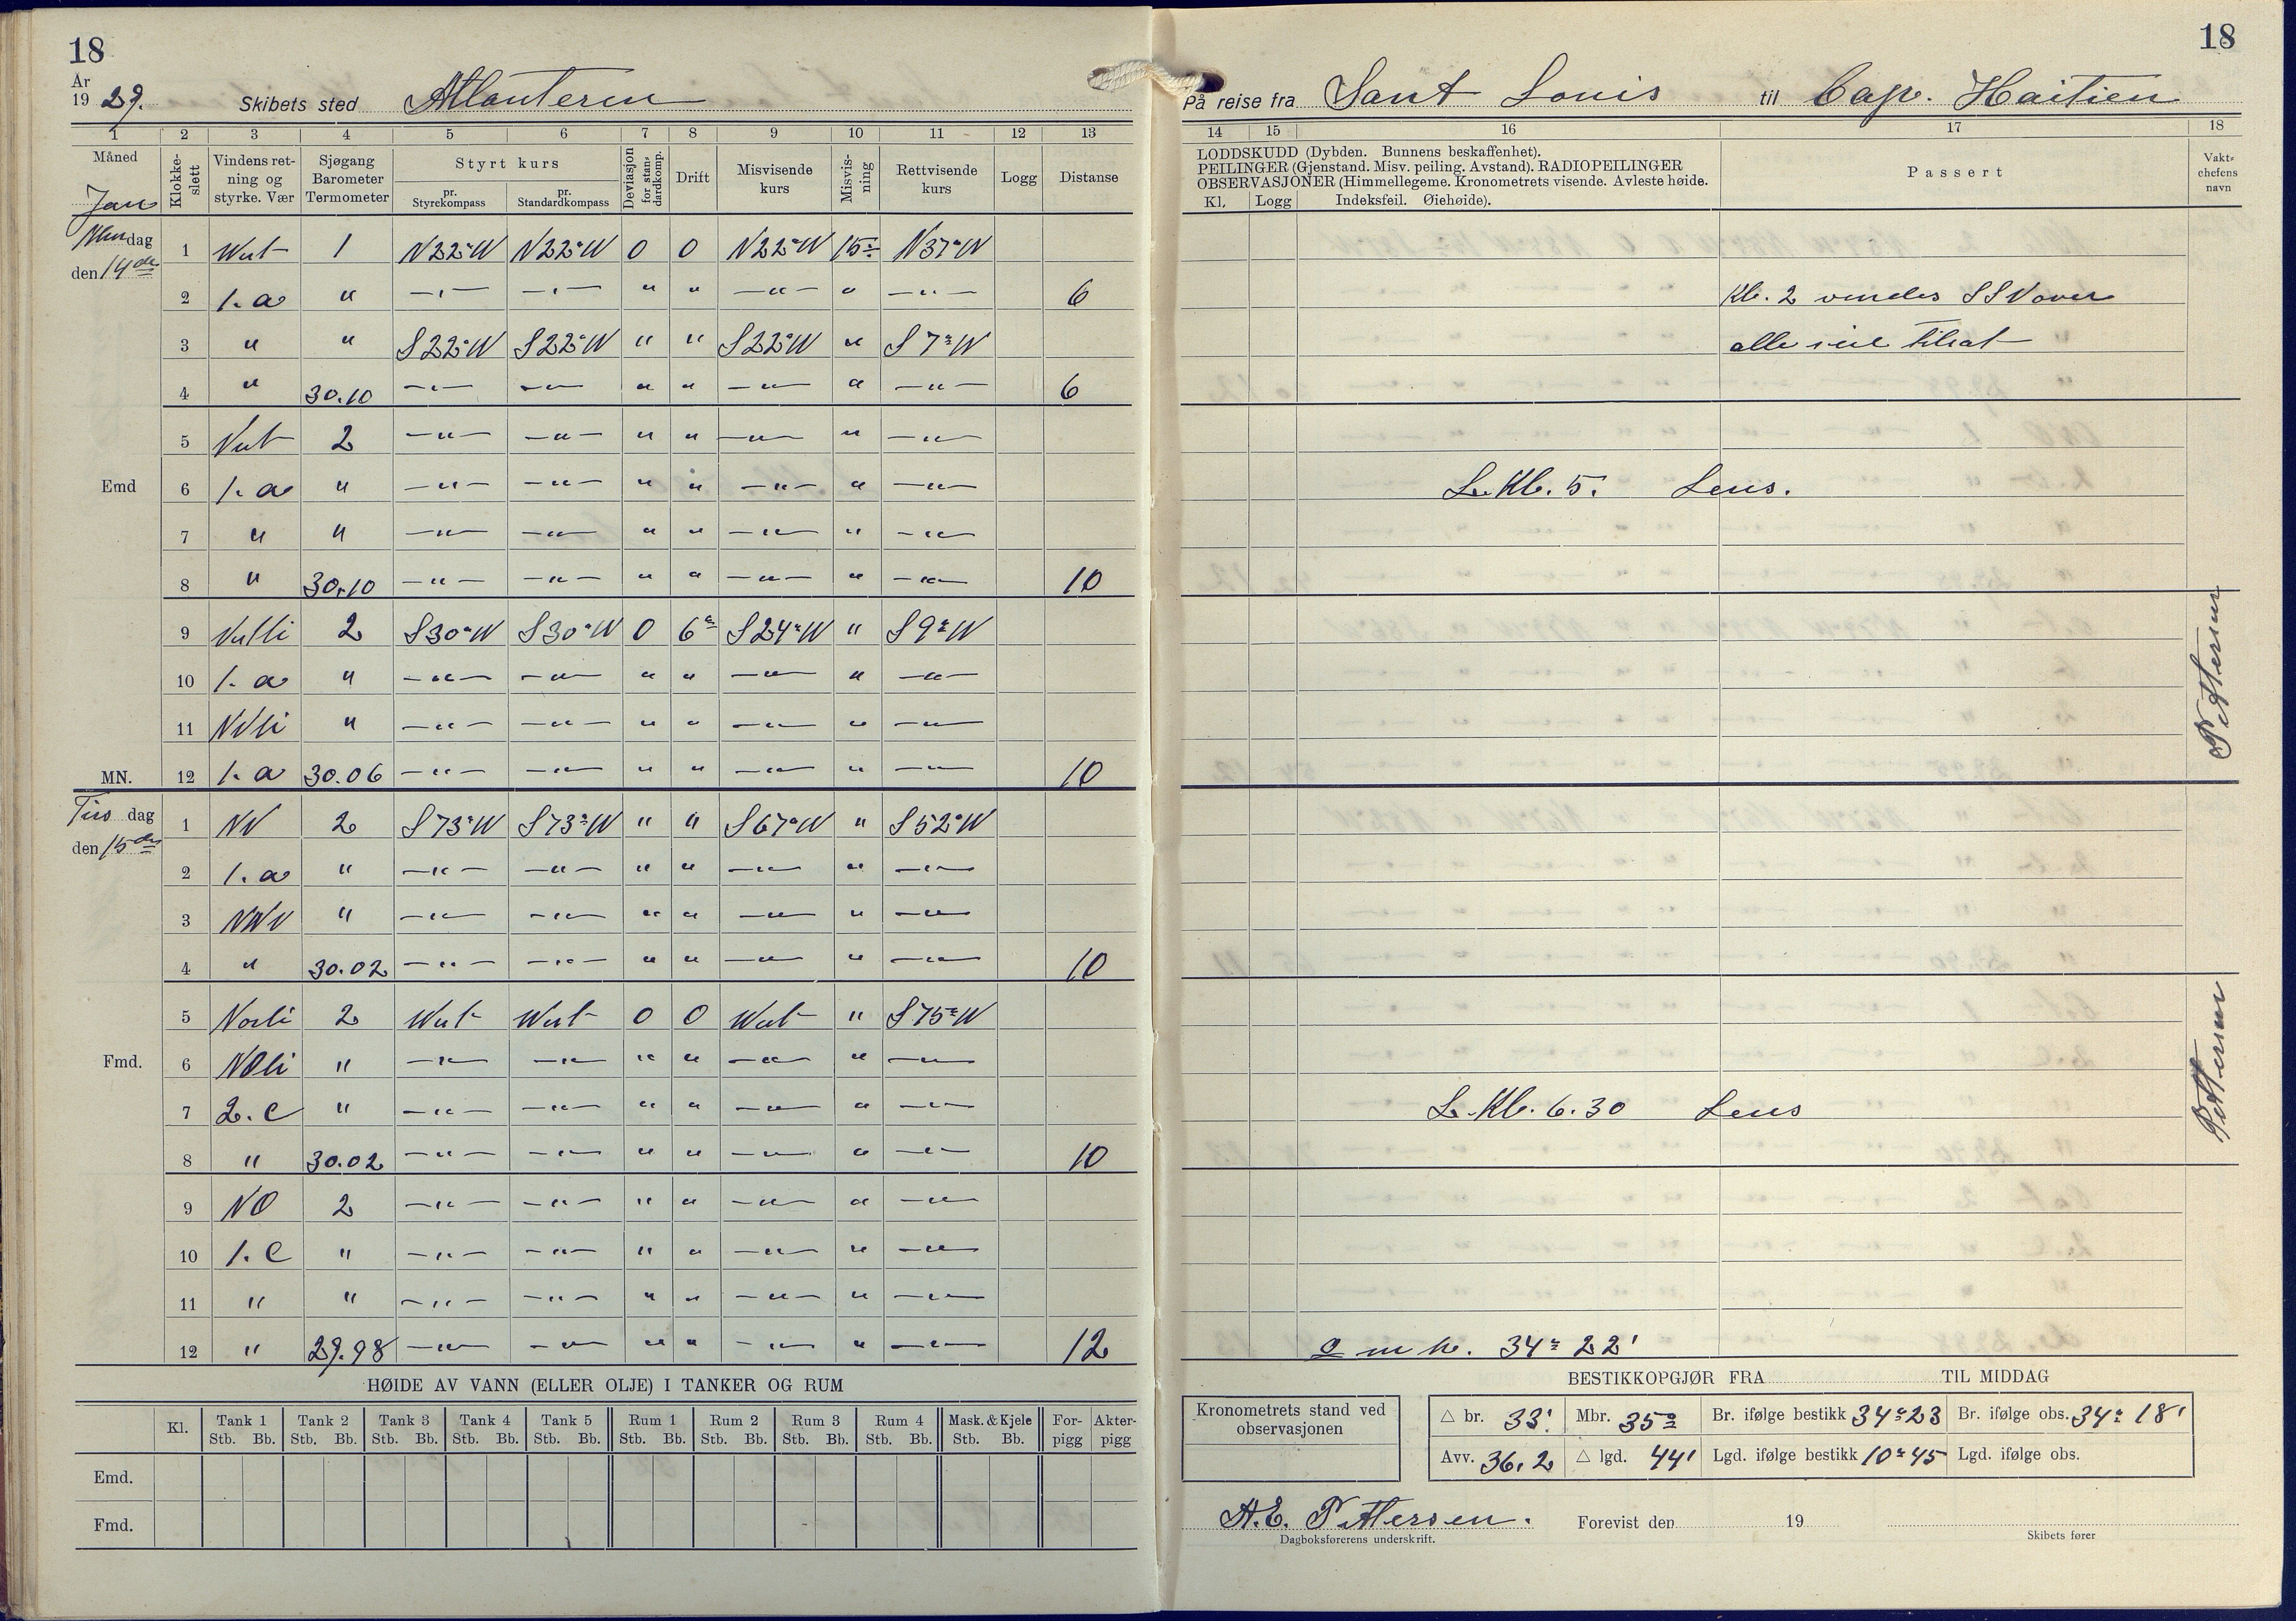 18
18
År
19 29. Skibets sted Atlanteren
På reise fra Sant Louis til Cap. Haitien
1 2 3 4 5 6 7 8 9 10 11 12 13
14 15 16 17 18
Måned Jan
Klokke-slett
Vindens ret-ning og styrke. Vær
Sjøgang Barometer Termometer
Styrt kurs
pr. Styrekompass
pr. Standardkompass
Deviasjon for stan-dardkomp.
Drift
Misvisende kurs
Misvis-ning
Rettvisende kurs
Logg
Distanse
LODDSKUDD (Dybden. Bunnens beskaffenhet).
PEILINGER (Gjenstand. Misv. peiling. Avstand). RADIOPEILINGER
OBSERVASJONER (Himmellegeme. Kronometrets visende. Avleste høide.
Kl. Logg Indeksfeil. Øiehøide).
Passert
Vakt-chefens navn
Mandag
den 14de
1 West 1 N22°W N22°W 0 0 N22°W 15° N37°W
2 1.a " —"— —"— " " —"— " —"— 6 Kl. 2 vendes SSV over
3 " " S22°W S22°W " " S22°W " S7°W alle seil tilsat
4 " 30.10 —"— —"— " " —"— " —"— 6
5 Vest 2 —"— —"— " " —"— " —"—
Emd 6 1.a " —"— —"— " " —"— " —"— L. Kl. 5. Lens.
7 " " —"— —"— " " —"— " —"—
8 " 30.10 —"— —"— " " —"— " —"— 10
9 Vestli 2 S30°W S30°W 0 6° S24°W " S9°W
10 1.a " —"— —"— " " —"— " —"—
11 NVli " —"— —"— " " —"— " —"—
MN. 12 1.a 30.06 —"— —"— " " —"— " —"— 10
Pettersen
Tirsdag
den 15de
1 NV 2 S73°W S73°W " " S67°W " S52°W
2 1.a " —"— —"— " " —"— " —"—
3 NNV " —"— —"— " " —"— " —"—
4 " 30.02 —"— —"— " " —"— " —"— 10
5 Nordli 2 West West 0 0 West " S75°W
Fmd. 6 NOli " —"— —"— " " —"— " —"—
7 2.C " —"— —"— " " —"— " —"— L. Kl. 6.30 Lens
8 " 30.02 —"— —"— " " —"— " —"— 10
Pettersen
9 NO 2 —"— —"— " " —"— " —"—
10 1.C " —"— —"— " " —"— " —"—
11 " " —"— —"— " " —"— " —"—
12 " 29.98 —"— —"— " " —"— " —"— 12 m h. 34° 22'
HØIDE AV VANN (ELLER OLJE) I TANKER OG RUM
Kl. Tank 1 Tank 2 Tank 3 Tank 4 Tank 5 Rum 1 Rum 2 Rum 3 Rum 4 Mask. & Kjele For-pigg Akter-pigg
Stb. Bb. Stb. Bb. Stb. Bb. Stb. Bb. Stb. Bb. Stb. Bb. Stb. Bb. Stb. Bb. Stb. Bb. Stb. Bb.
Emd.
Fmd.
BESTIKKOPGJØR FRA TIL MIDDAG
Kronometrets stand ved observasjonen
△ br. 33' Mbr. 35° Br. ifølge bestikk 34°23 Br. ifølge obs. 34° 18'
Avv. 36.2 △ lgd. 44' Lgd. ifølge bestikk 10°45 Lgd. ifølge obs.
A.E. Pettersen.
Dagboksførerens underskrift.
Forevist den 19
Skibets fører